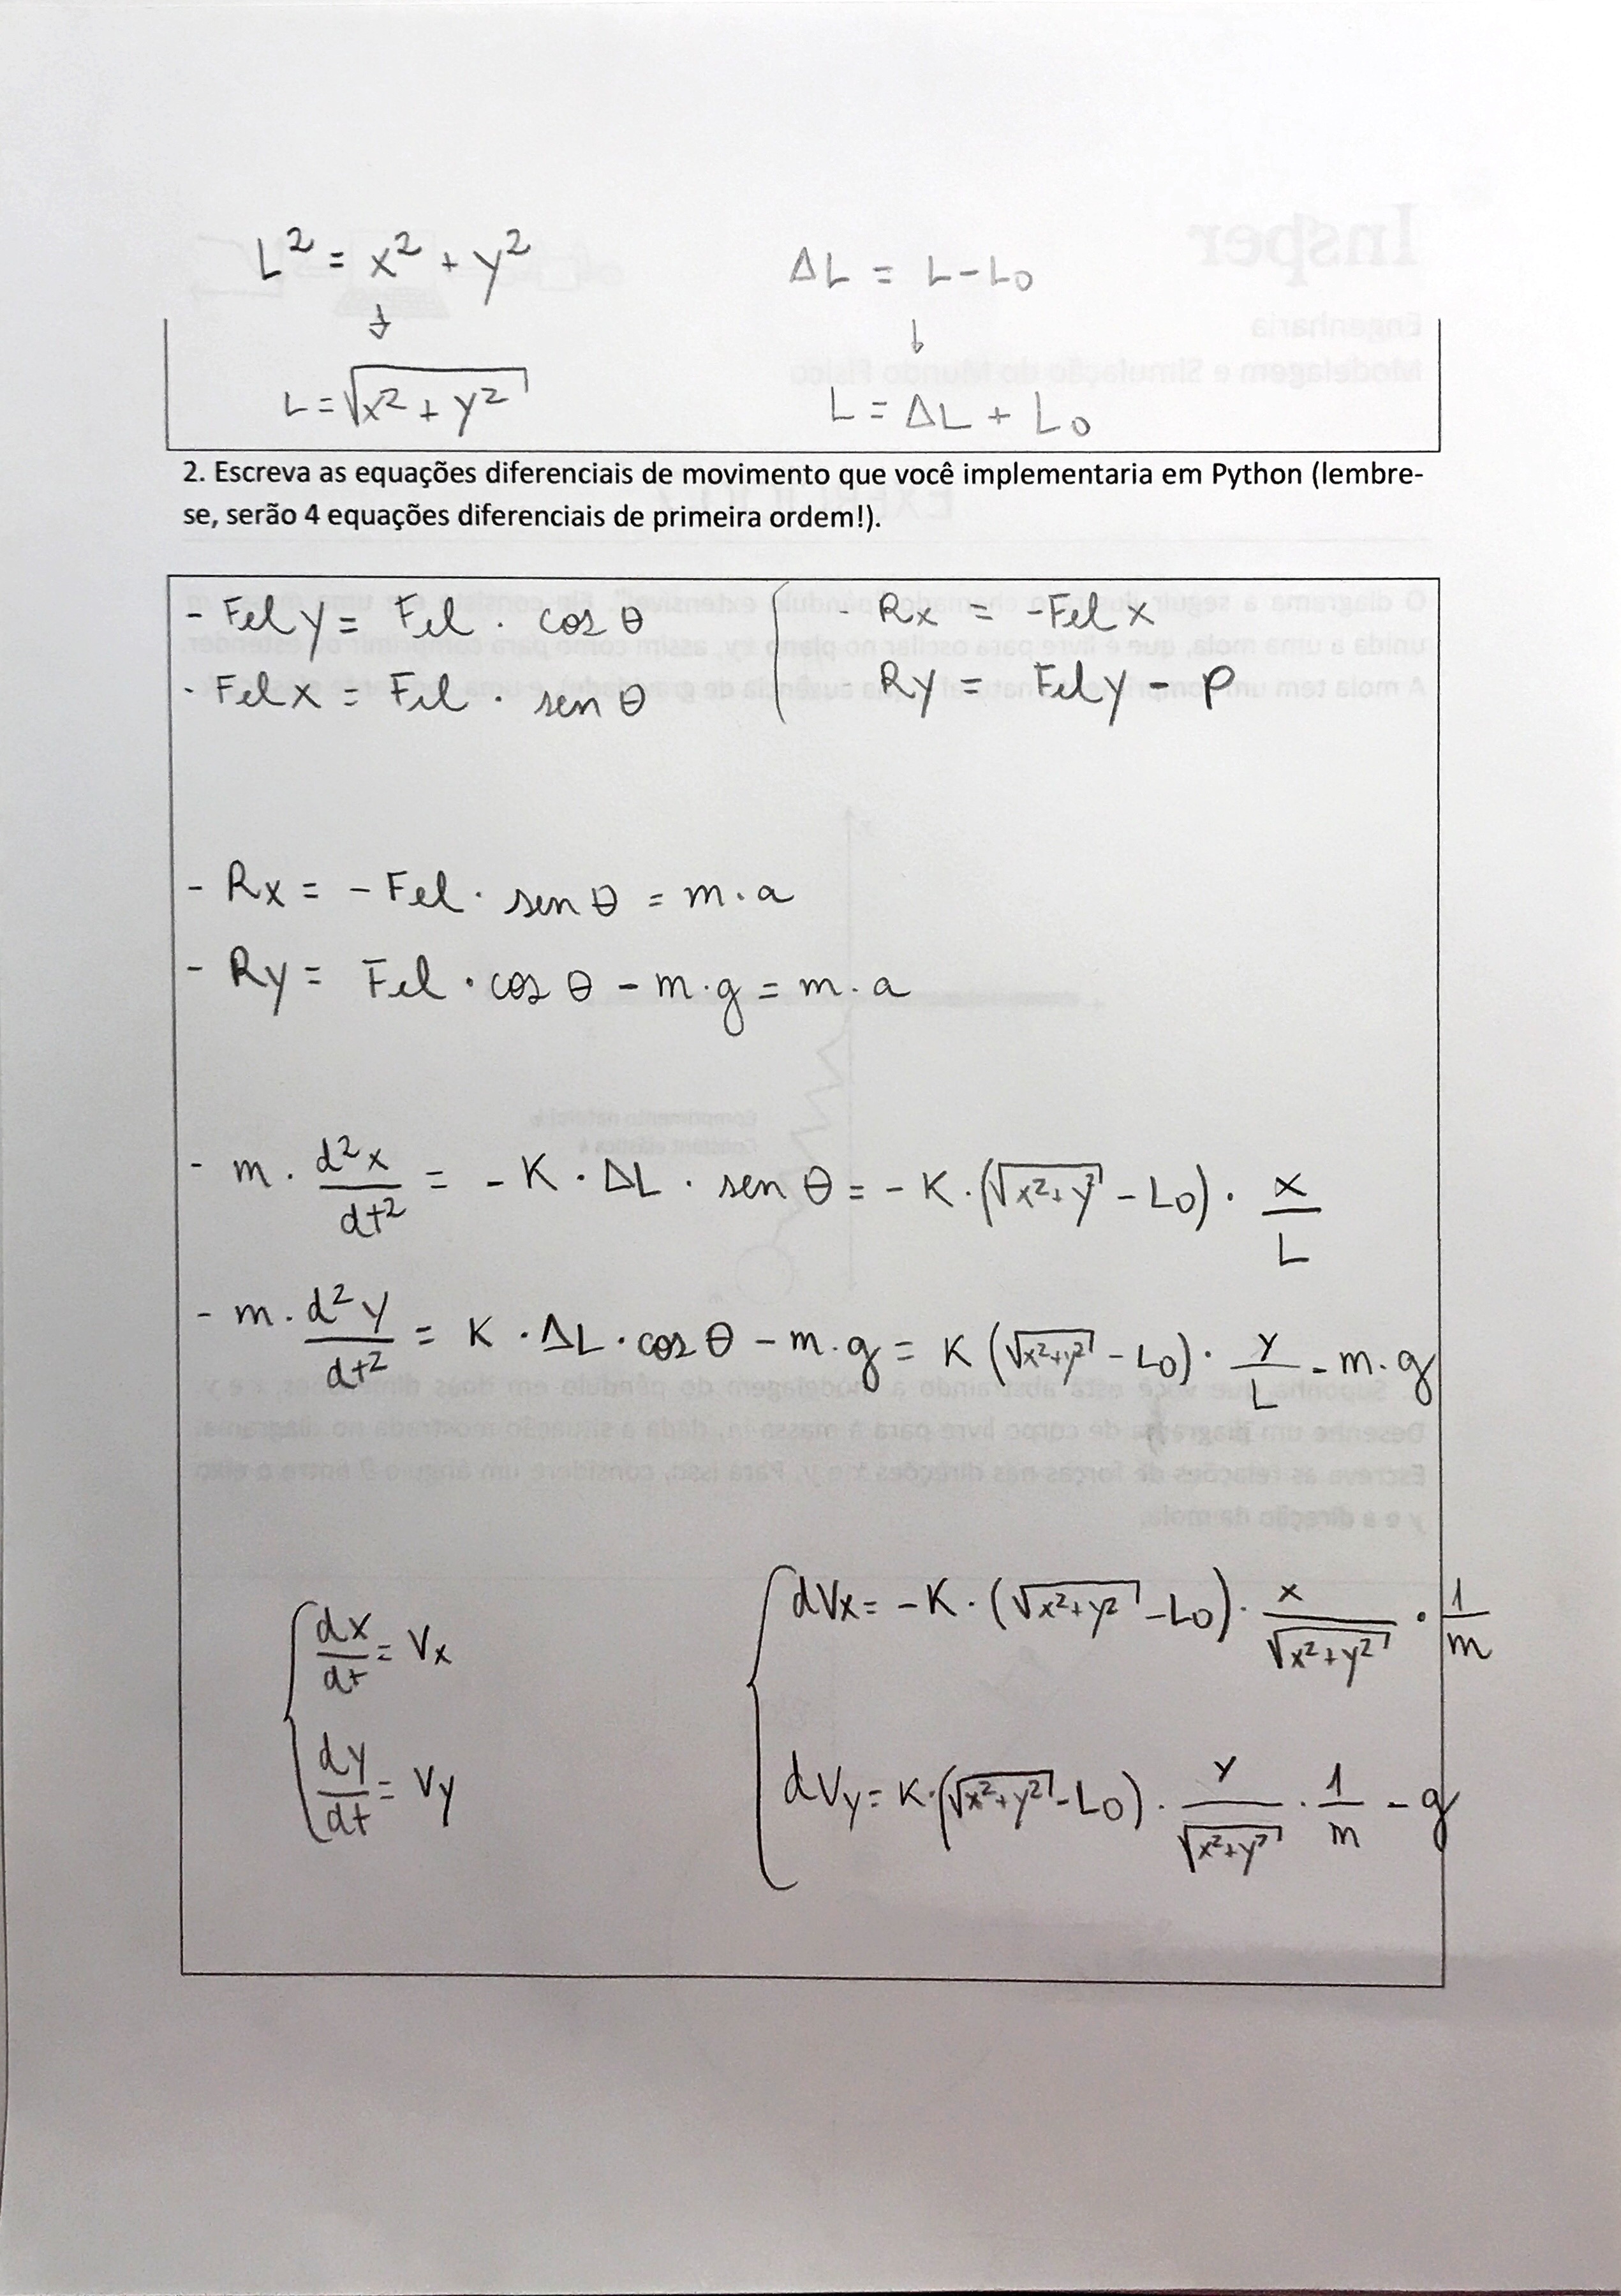 L² = x² + y²
↓
L = √(x² + y²)
ΔL = L - L0
↓
L = ΔL + L0
2. Escreva as equações diferenciais de movimento que você implementaria em Python (lembre-
se, serão 4 equações diferenciais de primeira ordem!).
- Fel y = Fel · cos θ
- Fel x = Fel · sen θ
- Rx = -Fel x
- Ry = Fel y - P
- Rx = - Fel · sen θ = m · a
- Ry = Fel · cos θ - m · g = m · a
- m · d²x/dt² = - K · ΔL · sen θ = - K · (√(x² + y²) - L0) · x/L
- m · d²y/dt² = K · ΔL · cos θ - m · g = K (√(x² + y²) - L0) · y/L - m · g
dx/dt = Vx
dy/dt = Vy
dVx = - K · (√(x² + y²) - L0) · x/√(x² + y²) · 1/m
dVy = K · (√(x² + y²) - L0) · y/√(x² + y²) · 1/m - g
Insper
Engenharia
Modelagem e Simulação do Mundo Físico